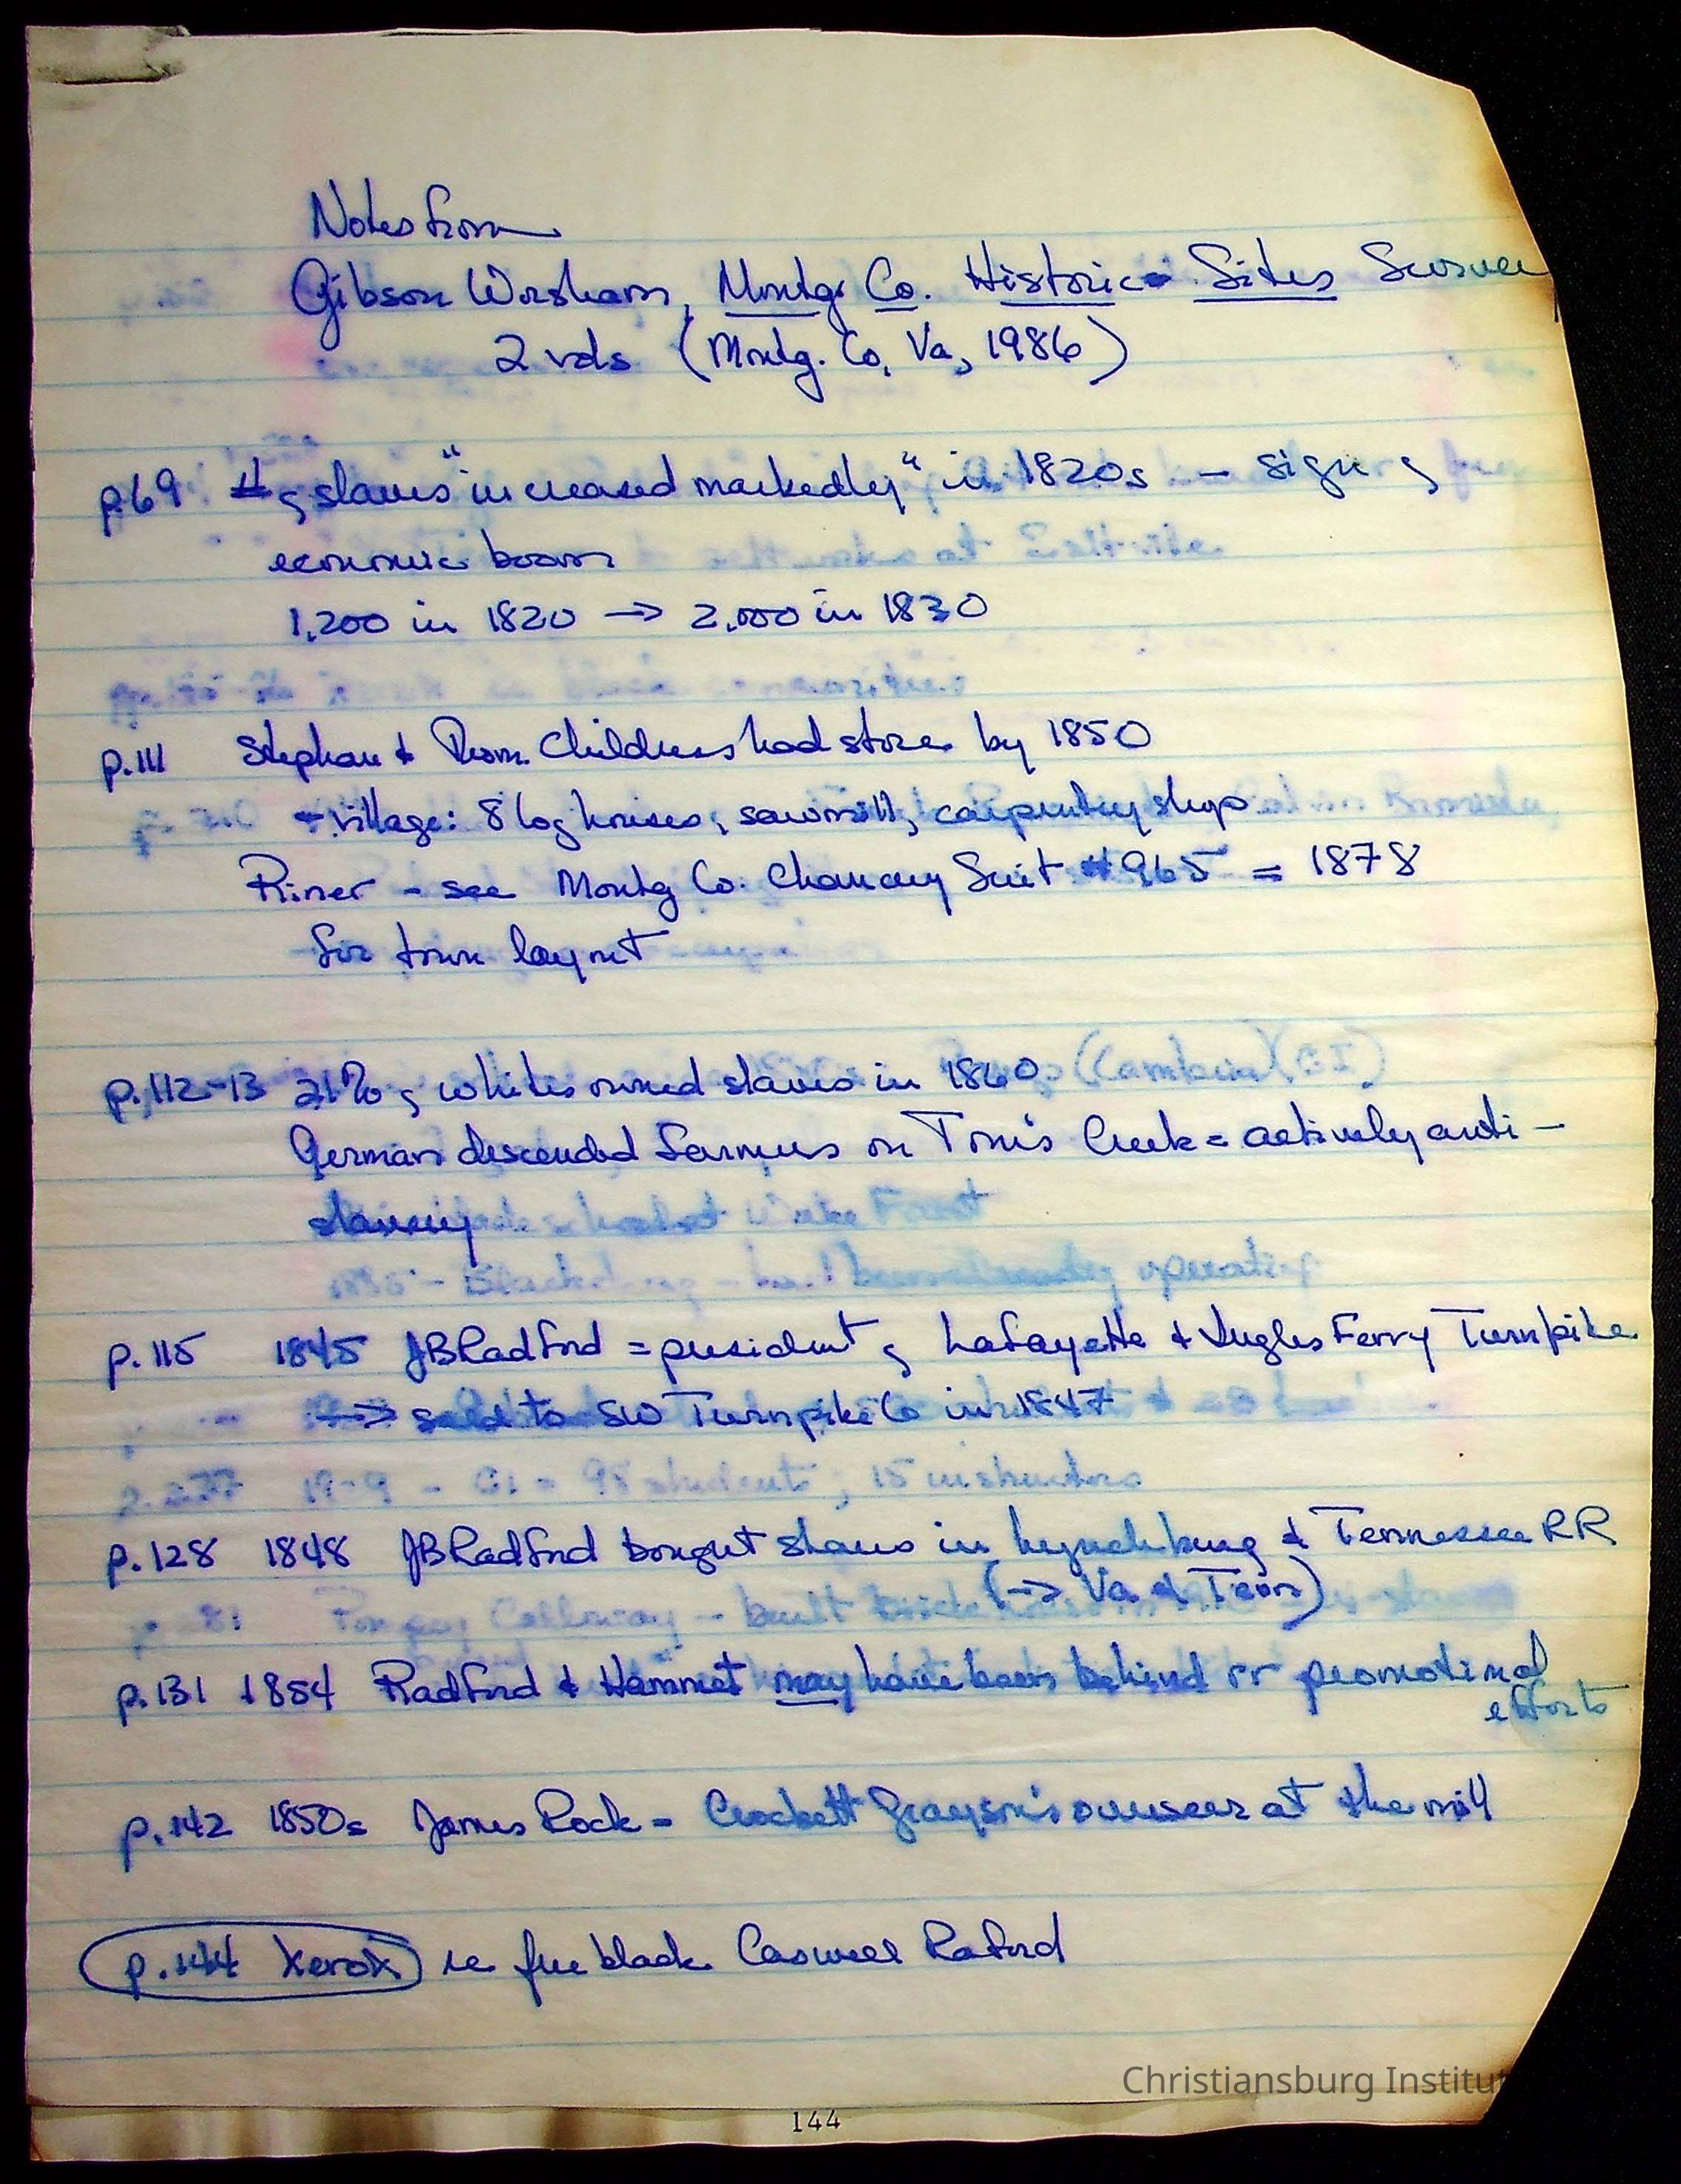 Notes from
Gibson Worsham, Montg. Co. Historic Sites Survey
2 vols (Montg. Co, Va, 1986)
p.69 # of slaves "increased markedly" in 1820s – sign of
economic boom
1,200 in 1820 → 2,000 in 1830
p.111 Stephan & Thom. Childress had store by 1850
village: 8 log houses, sawmill, carpentry shop
Riner – see Montg Co. Chancery Suit #965 = 1878
for town layout
p.112-13 21% of whites owned slaves in 1860
German descended farmers on Tom's Creek = actively anti-
slavery
p.115 1845 JB Radford = president of Lafayette & Ingles Ferry Turnpike
→ sold to SW Turnpike Co in 1847
p.128 1848 JB Radford bought shares in Lynchburg & Tennessee RR
(→ Va & Tenn)
p.131 1854 Radford & Hammet may have been behind rr promotional
efforts
p.142 1850s James Rock = Crockett Grayson's overseer at the mill
p.144 Xerox re free black Caswell Raford
Christiansburg Institut
144